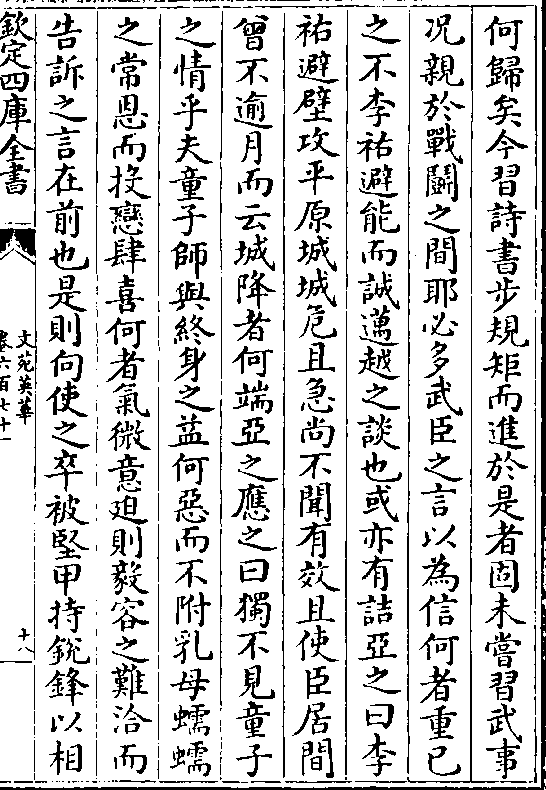 何歸矣今習詩書步規矩而進於是者固未嘗習武事
况親於戰鬬之間耶必多武臣之言以為信何者重已
之不李祐避能而誠邁越之談也或亦有詰亞之曰李
祐避壁攻平原城城危且急尚不聞有效且使臣居間
曾不逾月而云城降者何端亞之應之曰獨不見童子
之情乎夫童子師與終身之益何惡而不附乳母蠕蠕
之常恩而投戀肆喜何者氣微意迫則毅容之難洽而
告訴之言在前也是則向使之卒被堅甲持銳鋒以相
欽定四庫全書
文苑英華
卷六百七十一
十八